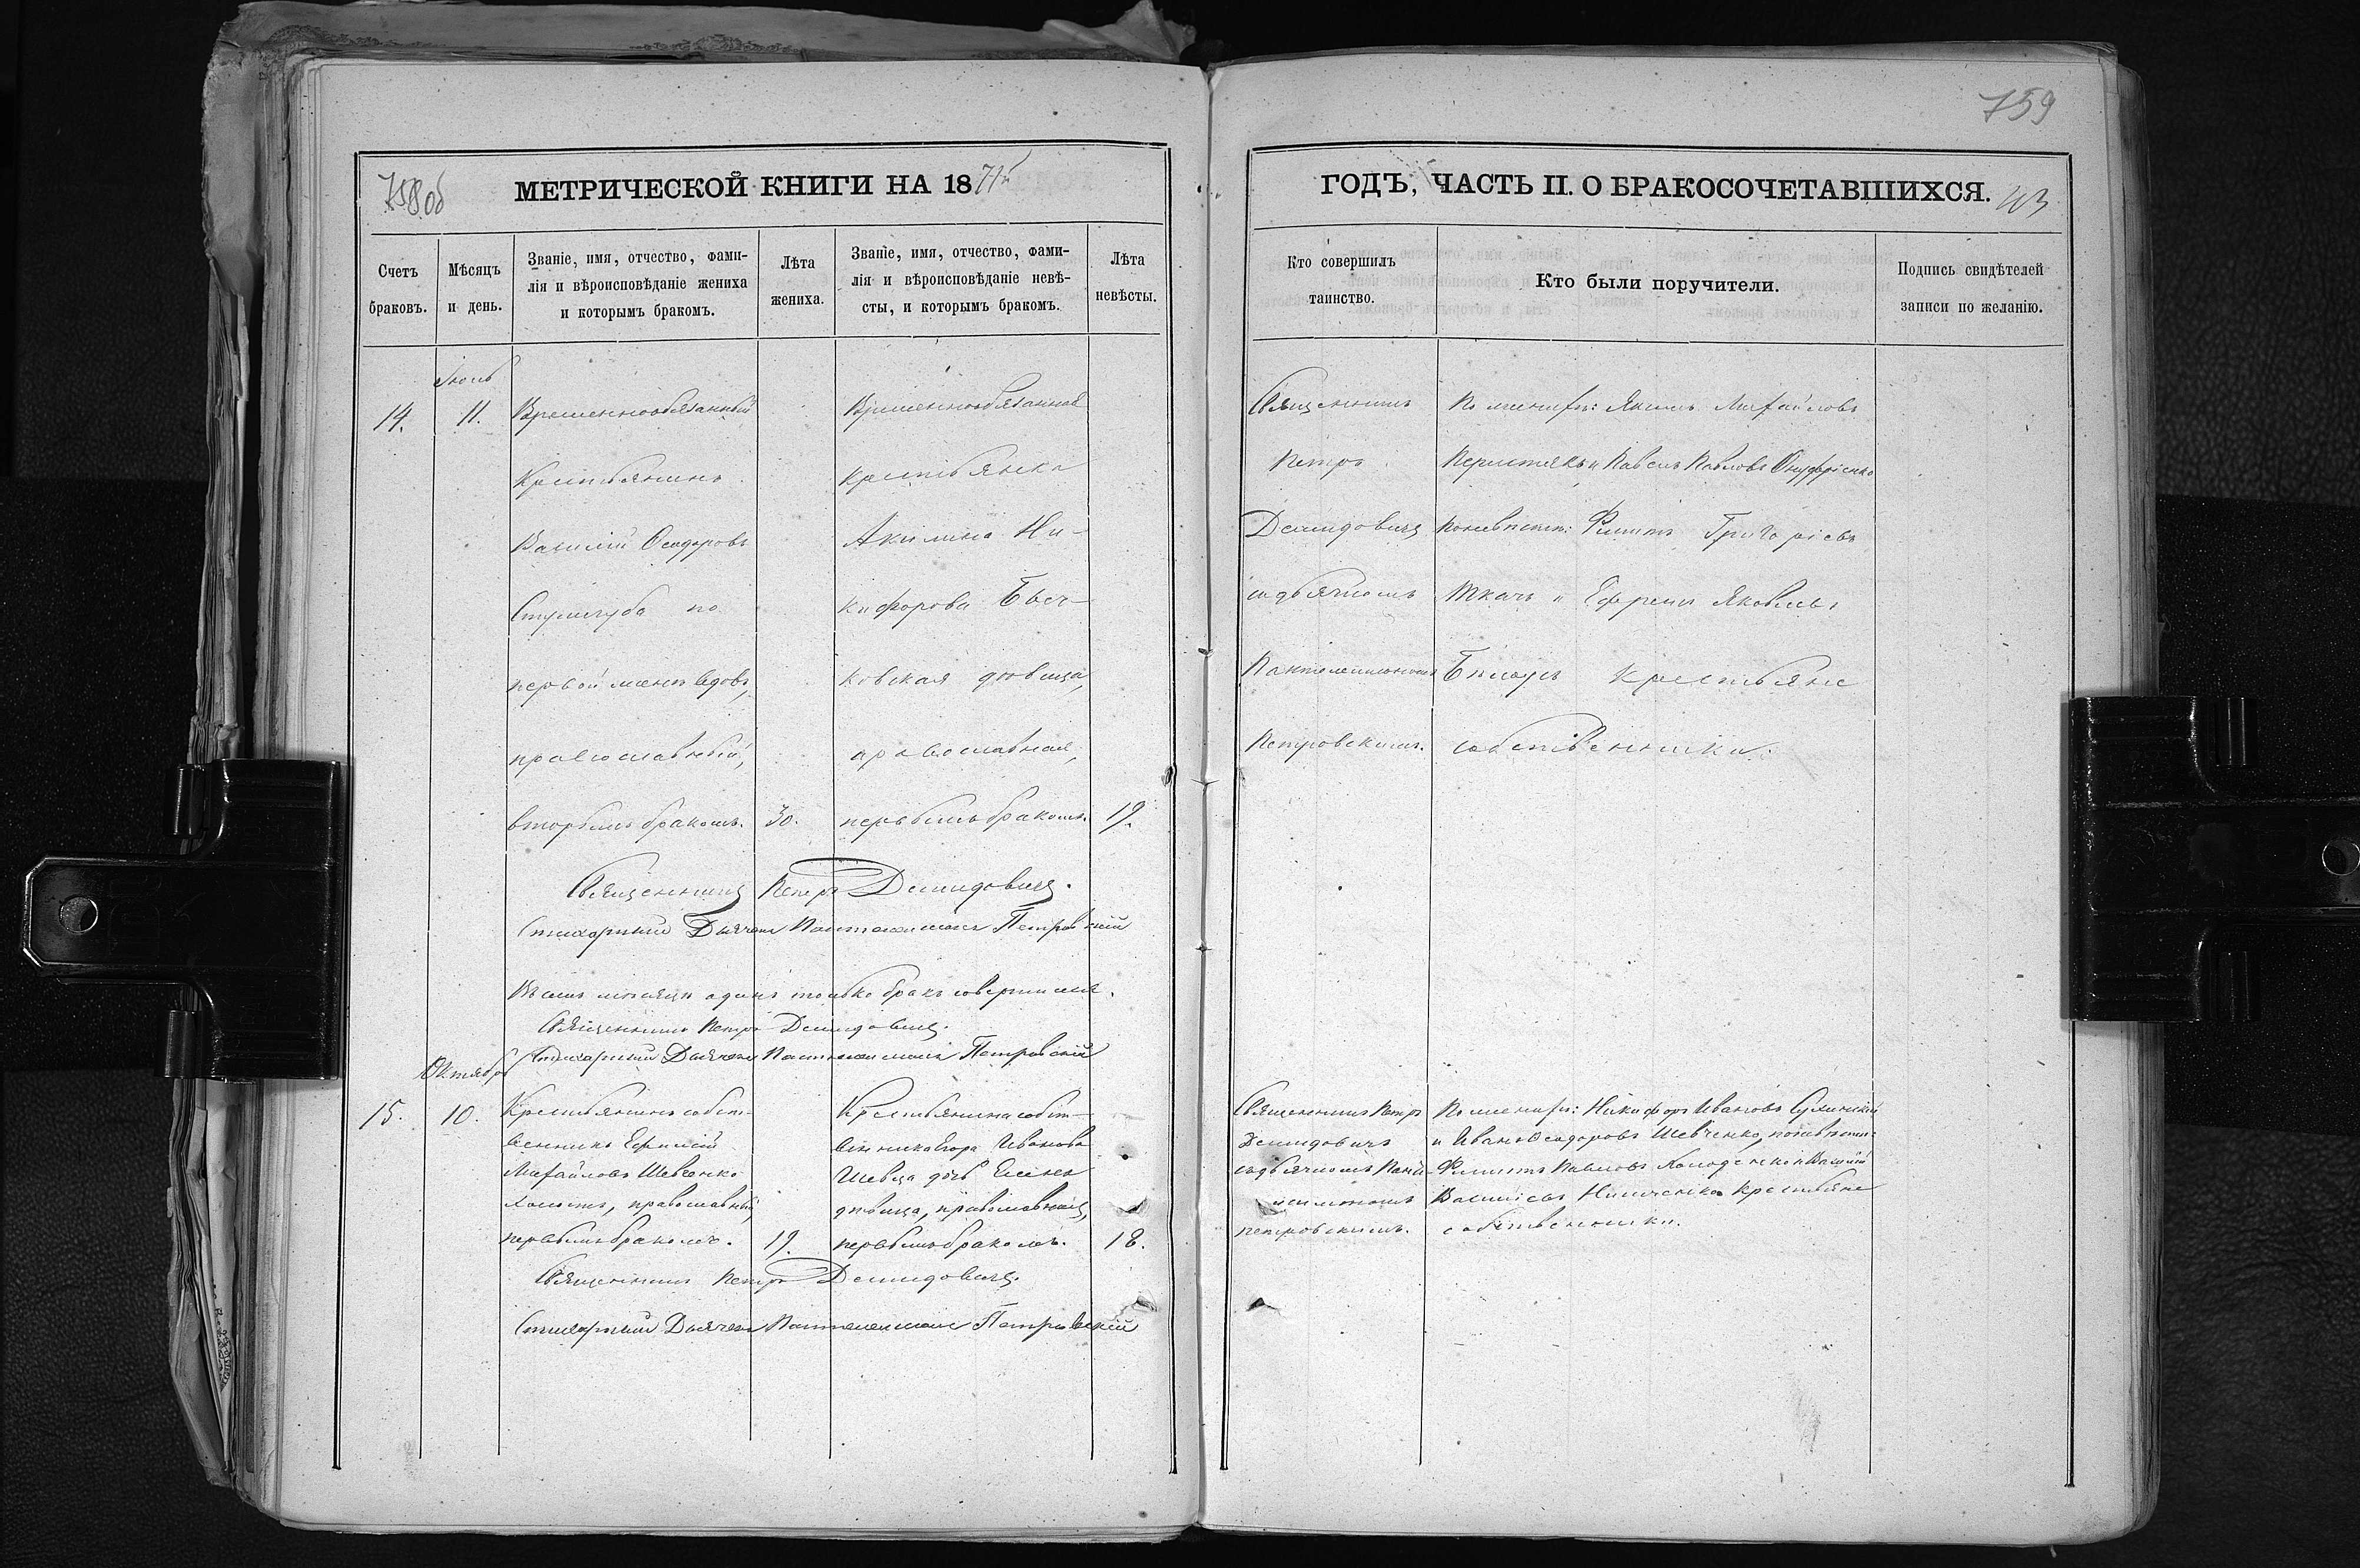 759
758об
МЕТРИЧЕСКОЙ КНИГИ НА 1871й
Счетъ браковъ.
Мѣсяцъ и день.
Званіе, имя, отчество, фами-
лія и вѣроисповѣданіе жениха
и которымъ бракомъ.
Лѣта
жениха.
Званіе, имя, отчество, фами-
лія и вѣроисповѣданіе невѣ-
сты, и которымъ бракомъ.
Лѣта
невѣсты.
14.
11.
Временнообязанный
крестьянинъ
Василій Ѳеодоровъ
по
первой женѣ вдовъ,
православный,
вторымъ бракомъ.
30.
Временнообязанная
крестьянка
Акилина Ни-
кифорова
ковская дѣвица,
православная,
первымъ бракомъ.
19.
Священникъ Петръ Демидовичъ.
Стихарный Дьячекъ Пантелеимонъ Петровскій
Въ семъ мѣсяцѣ одинъ только бракъ совершился.
Священникъ Петръ Демидовичъ.
Стихарный Дьячекъ Пантелеимонъ Петровскій
Октябрь
15.
10.
Крестьянинъ собст-
венникъ Ефимій
Михайловъ Шевченко
холостъ, православный,
первымъ бракомъ.
19.
Крестьянина собст-
венника Егора Иванова
Шевца дочь Елена
дѣвица, православная,
первымъ бракомъ.
18.
Священникъ Петръ Демидовичъ.
Стихарный Дьячекъ Пантелеимонъ Петровскій
ГОДЪ, ЧАСТЬ II. О БРАКОСОЧЕТАВШИХСЯ.
43
Кто совершилъ
таинство.
Кто были поручители.
Подпись свидѣтелей
записи по желанію.
Священникъ
Петръ
Демидовичъ
съ дьячкомъ
Пантелеимономъ
Петровскимъ.
По женихѣ: Якимъ Михайловъ
и Павелъ Павловъ Онуфріенко
по невѣстѣ: Филипъ Григоріевъ
Ткачъ и Ефремъ Яковлевъ
крестьяне
собственники.
Священникъ Петръ
Демидовичъ
съ дьячкомъ Панте-
леимономъ
Петровскимъ.
По женихѣ: Никифоръ Ивановъ
и Иванъ Ѳеодоровъ Шевченко, по невѣстѣ:
Филипъ Павловъ и Василій
крестьяне
собственники.